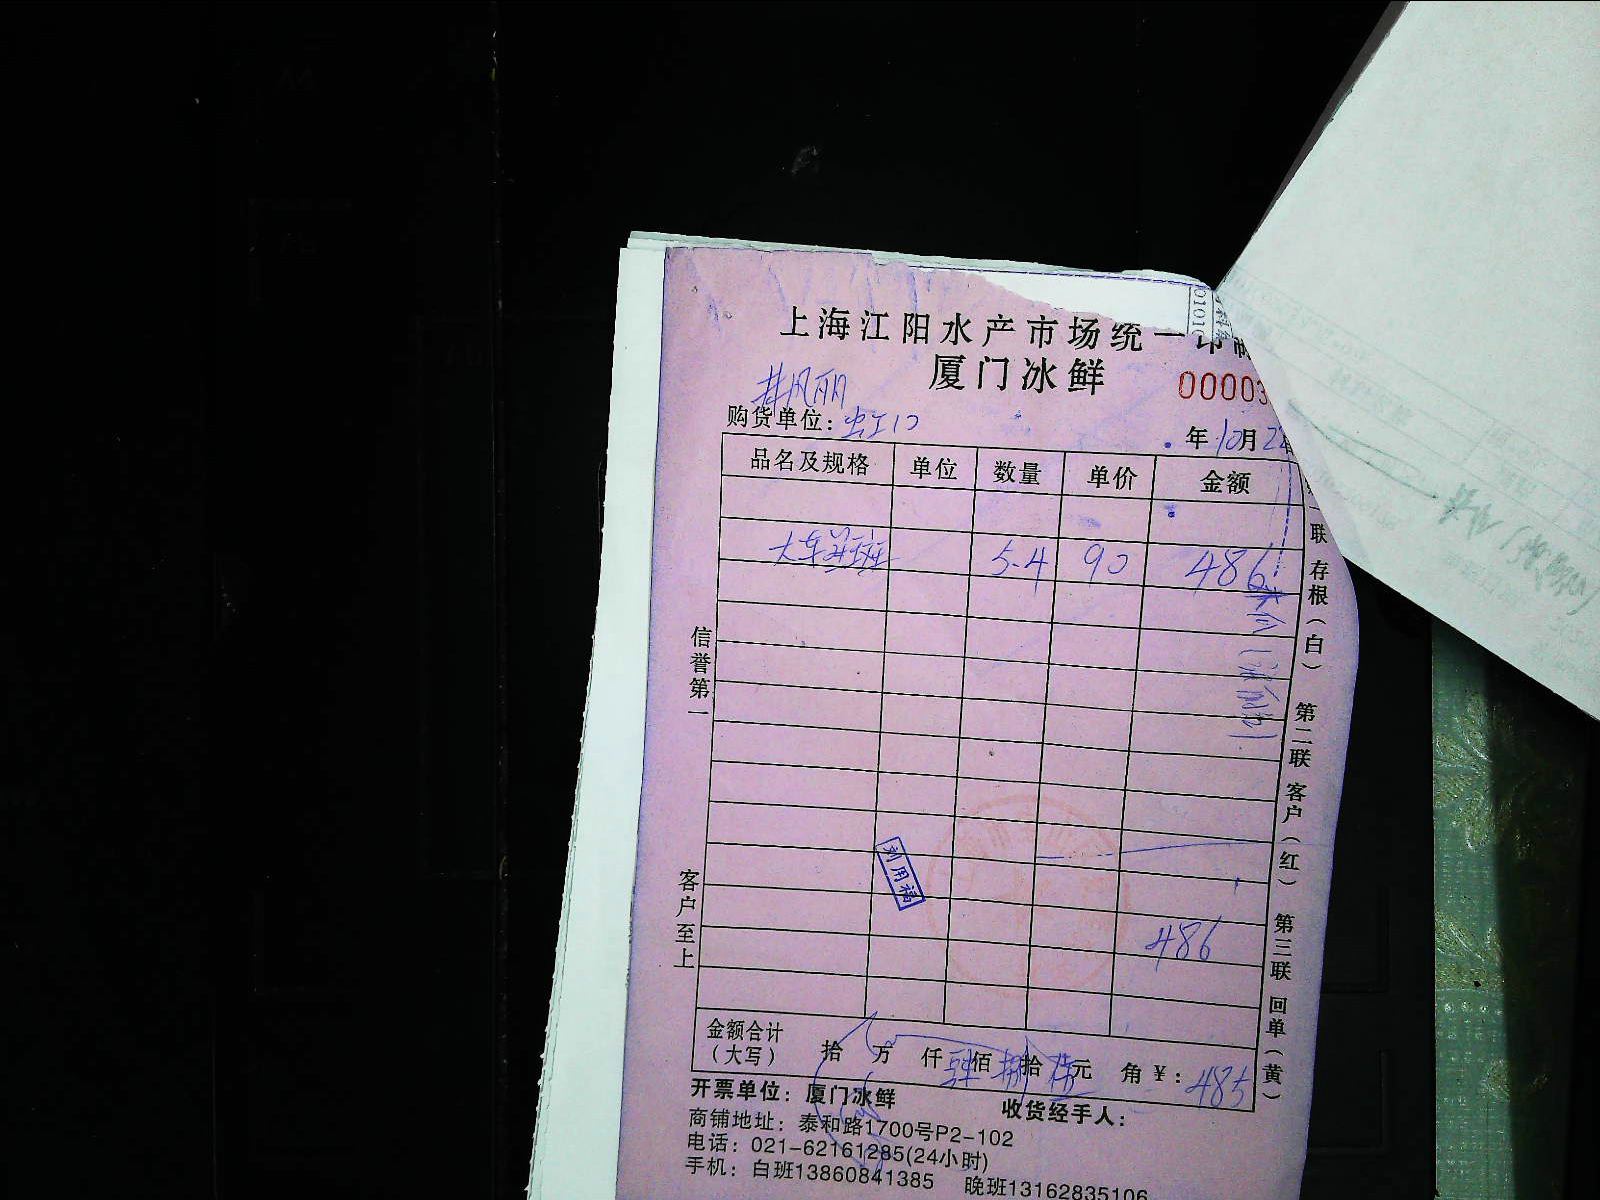 上海江阳水产市场统一印制
厦门冰鲜
00003
井风丽
购货单位：虹口
年10月2
品名及规格 单位 数量 单价 金额
5.4 90 486
486
金额合计（大写） 拾 万 仟 肆佰 捌拾 伍元 角 ¥：485
开票单位：厦门冰鲜 收货经手人：
商铺地址：泰和路1700号P2-102
电话：021-62161285(24小时)
手机：白班13860841385 晚班13162835106
信誉第一
客户至上
联 存根（白） 第二联 客户（红） 第三联 回单（黄）
刘用福